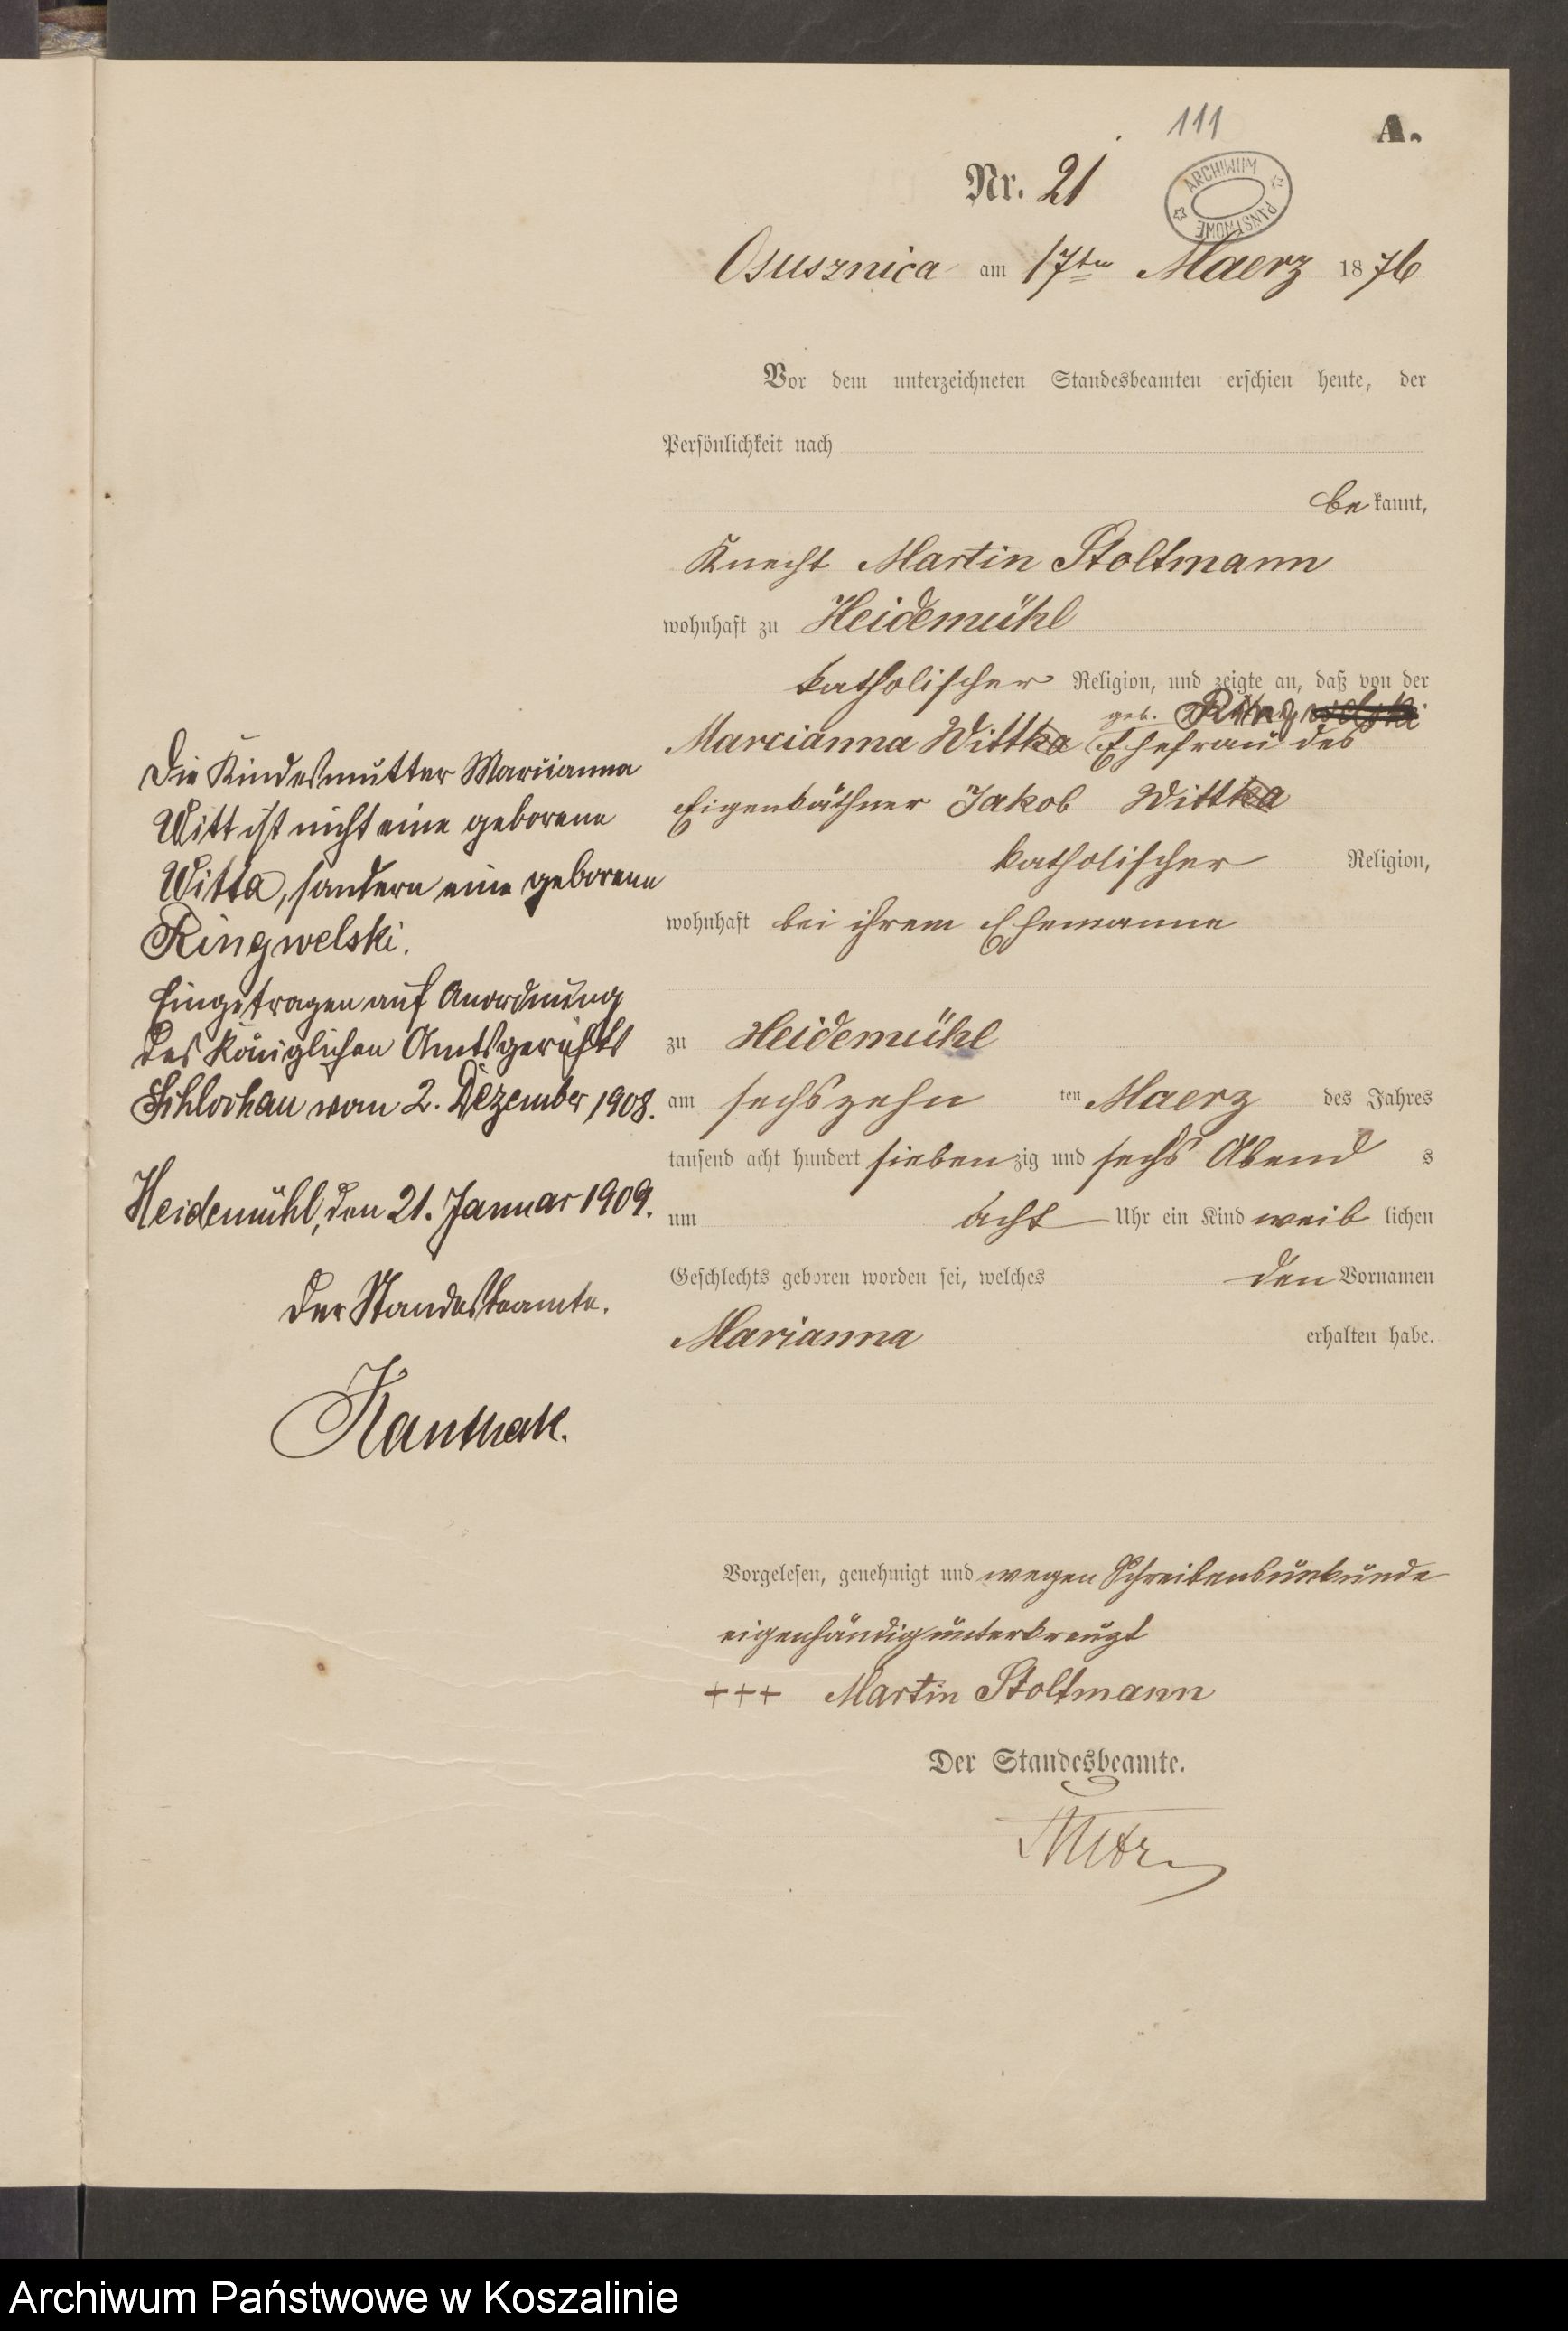 111
A.
Nr. 21
ARCHIWUM PAŃSTWOWE
Osusznica am 17ten Maerz 1876
Vor dem unterzeichneten Standesbeamten erschien heute, der
Persönlichkeit nach
be kannt,
Knecht Martin Stoltmann
wohnhaft zu Heidemühl
katholischer Religion, und zeigte an, daß von der
geb. Ringwelski
Marcianna Wittka Ehefrau des
Eigenkäthner Jakob Wittka
katholischer Religion,
wohnhaft bei ihrem Ehemanne
zu Heidemühl
am sechszehn ten Maerz des Jahres
tausend acht hundert sieben zig und sechs Abend s
um acht Uhr ein Kind weib lichen
Geschlechts geboren worden sei, welches den Vornamen
Marianna erhalten habe.
Vorgelesen, genehmigt und wegen Schreibensunkunde
eigenhändig unterkreuzt
+++ Martin Stoltmann
Der Standesbeamte.
Die Kindesmutter Mariianna
Witt ist nicht eine geborene
Witta, sondern eine geborene
Ringwelski.
Eingetragen auf Anordnung
des Königlichen Amtsgerichts
Schlochau vom 2. Dezember 1908.
Heidemühl, den 21. Januar 1909.
Der Standesbeamte.
Kanthak.
Archiwum Państwowe w Koszalinie